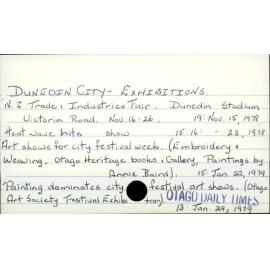 DUNEDIN CITY- EXHIBITIONS.
N.Z. Trade & Industries Fair. Dunedin Stadium
Victoria Road. Nov. 16-26. 19: Nov. 15, 1978
Heat wave hits show 15. 16: " 23, 1978
Art shows for city festival week. (Embroidery &
Weaving, Otago Heritage books & Gallery, Paintings by
Annie Baird). 15: Jan. 22, 1979
Painting dominates city festival art shows. (Otago
Art Society Festival Exhibition) OTAGO DAILY TIMES
13 Jan. 29, 1979